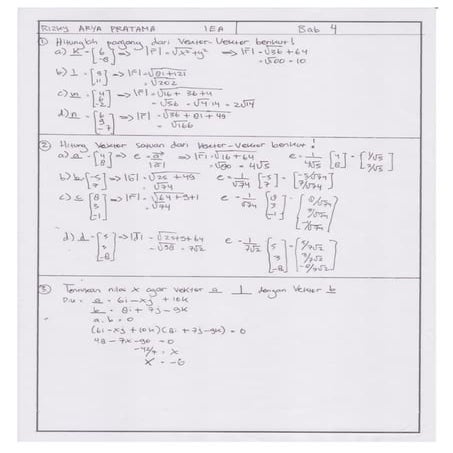 RIZKY ARYA PRATAMA 1EA Bab 4
① Hitunglah panjang dari Vektor-Vektor berikut!
a) k = (6 -8) => |r| = √x²+y² => |r| = √36 + 64
= √100 = 10
b) l = (9 11) => |r| = √81+121
= √202
c) m = (4 6 -2) => |r| = √16 + 36 + 4
= √56 = √4·14 = 2√14
d) n = (6 9 -7) => |r| = √36 + 81 + 49
= √166
② Hitung Vektor satuan dari Vektor-Vektor berikut!
a) a = [4 8] => e = a/|a| => |r| = √16 + 64 e = 1/4√5 [4 8] = [1/√5 2/√5]
= √80 = 4√5
b) b = [-5 7] => |b| = √25 + 49 e = 1/√74 [-5 7] = [-5/√74 7/√74]
= √74
c) c = [8 3 -1] => |r| = √64+9+1 e = 1/√74 [8 3 -1] = [8/√74 3/√74 -1/√74]
= √74
d) d = [5 3 -8] => |d| = √25+9+64 e = 1/7√2 [5 3 -8] = [5/7√2 3/7√2 -8/7√2]
= √98 = 7√2
③ Tentukan nilai x agar vektor a ⊥ dengan Vektor b
Dik: a = 6i - xj + 10k
b = 8i + 7j - 9k
a . b = 0
(6i - xj + 10k)(8i + 7j - 9k) = 0
48 - 7x - 90 = 0
-42/7 = x
x = -6